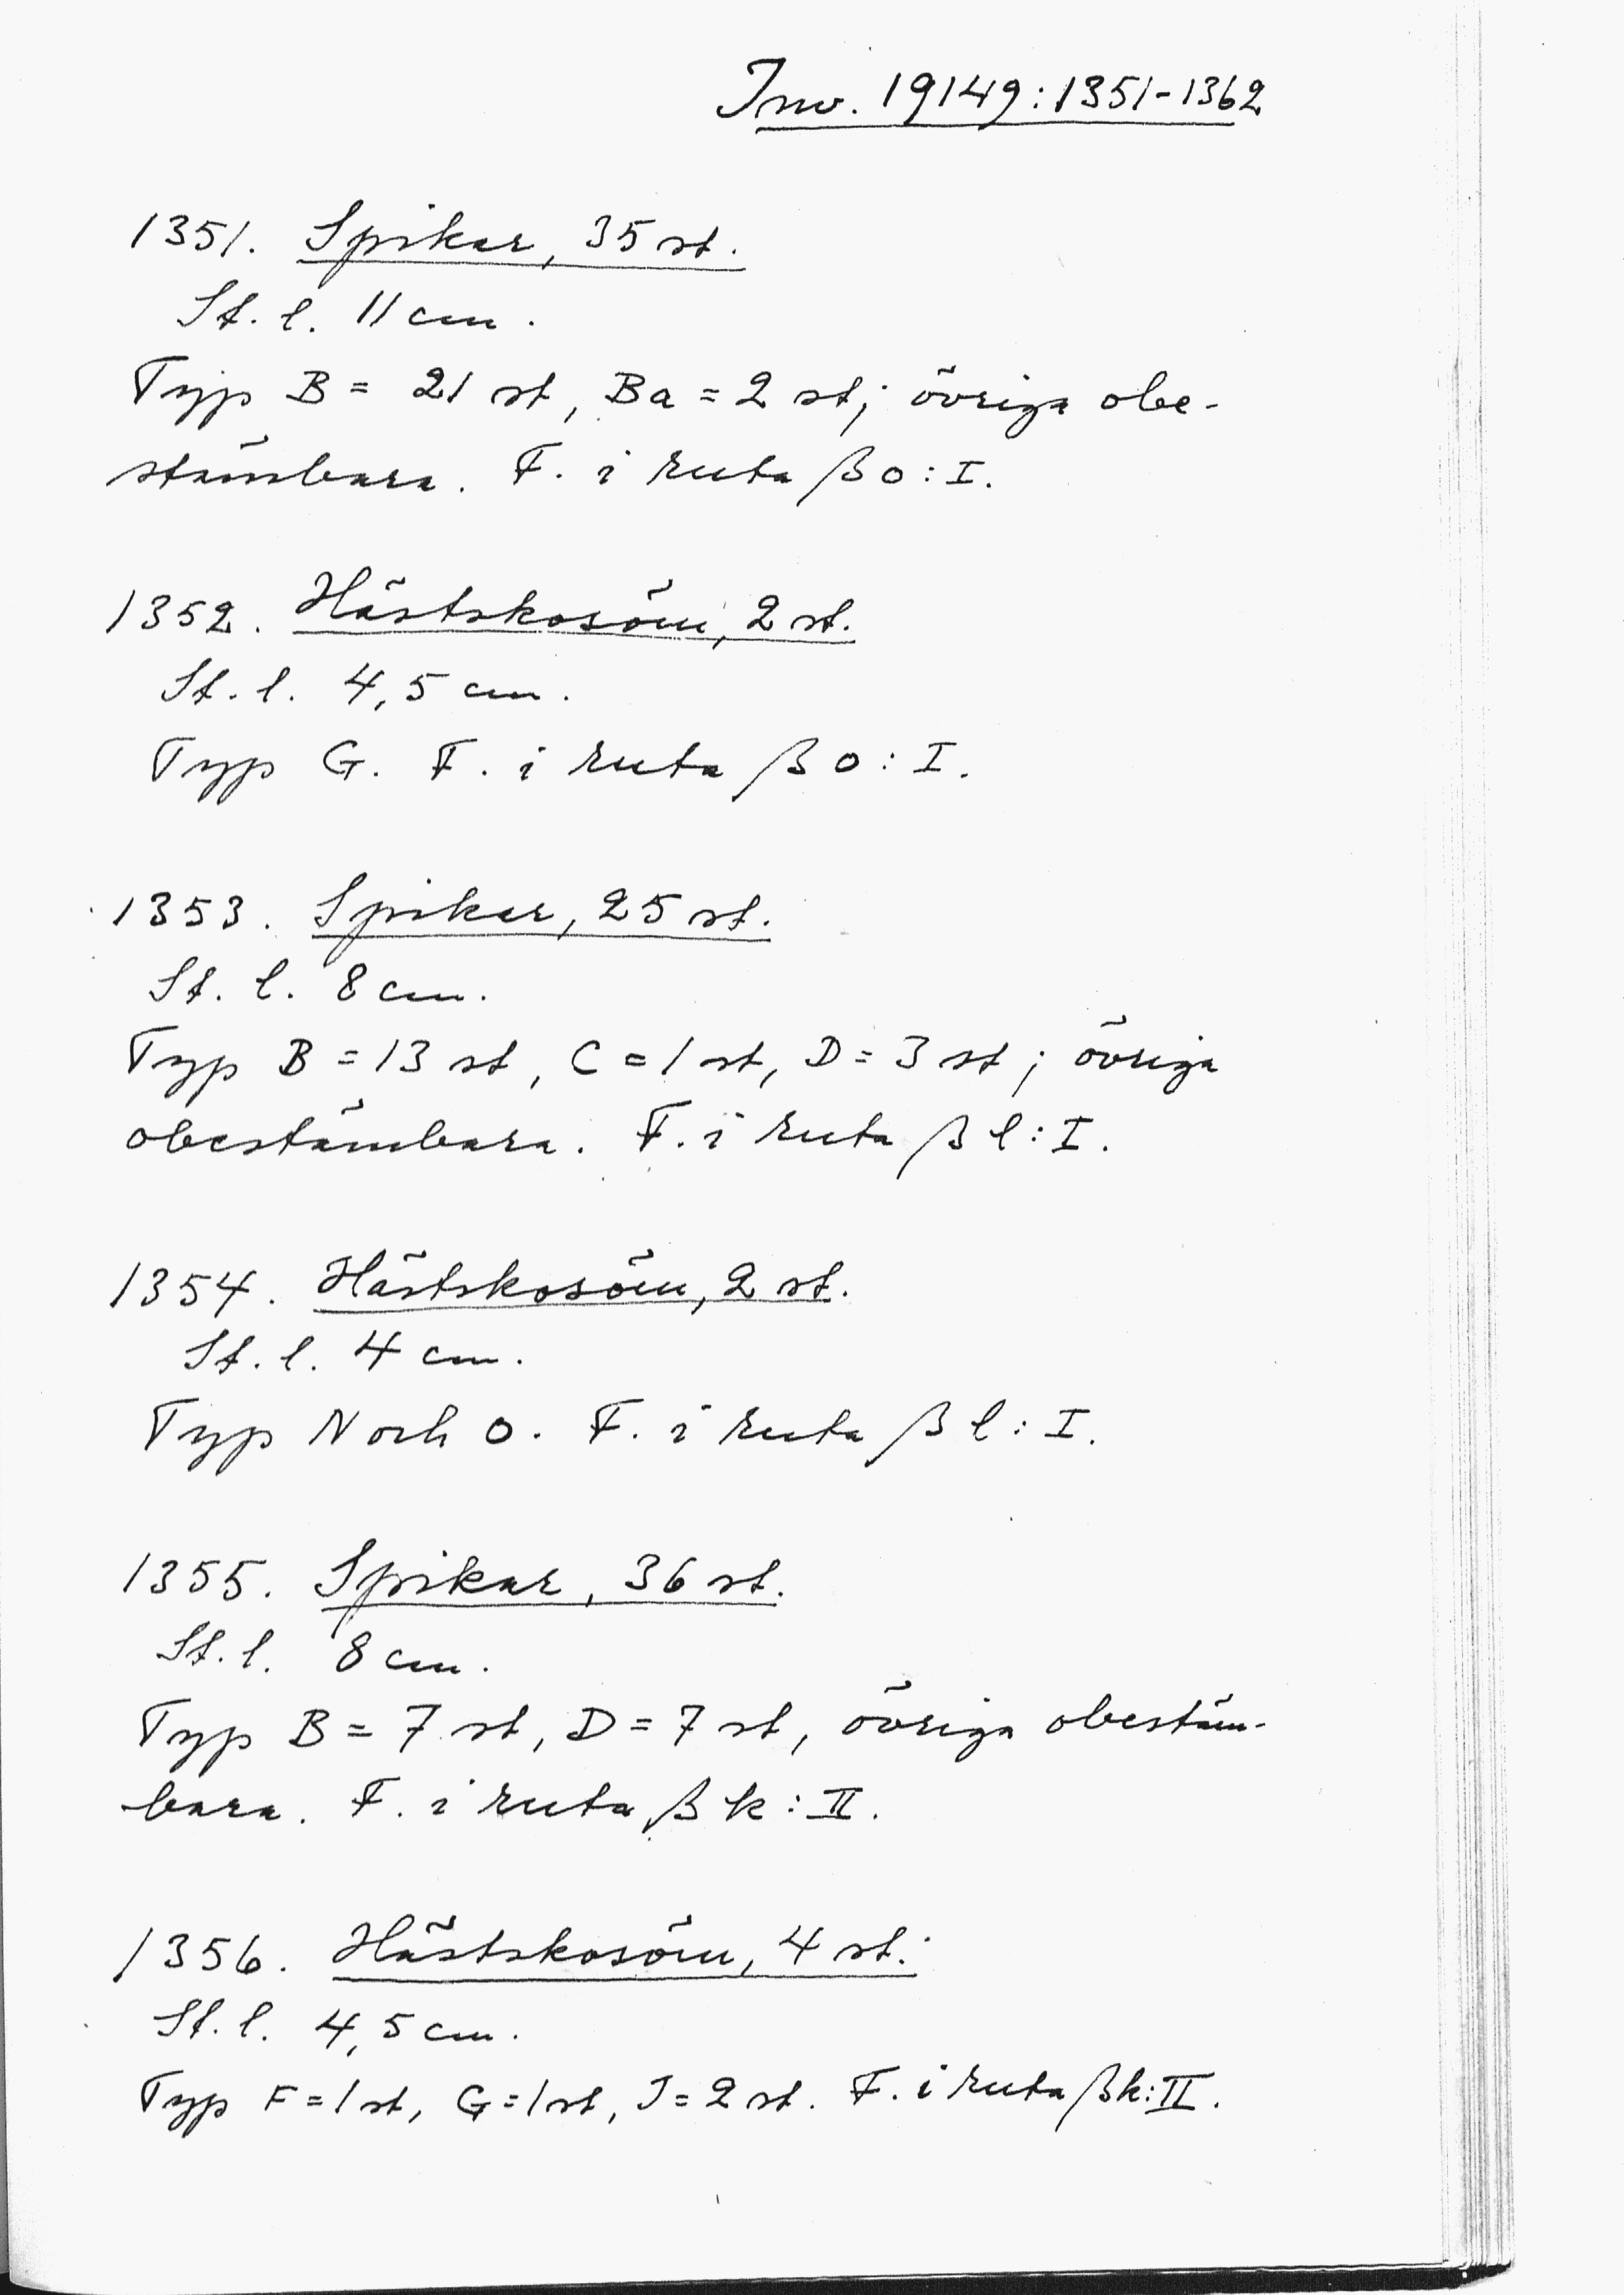 Inv. 19149:1351-1362
1351. Spikar, 35 st.
St. l. 11 cm.
Typ B = 21 st, Ba = 2 st; övriga obe-
stämbara. F. i ruta βo:I.
1352. Hästskosöm, 2 st.
St. l. 4,5 cm.
Typ G. F. i ruta βo:I.
1353. Spikar, 25 st.
St. l. 8 cm.
Typ B = 13 st, C = 1 st, D = 3 st; övriga
obestämbara. F. i ruta βl:I.
1354. Hästskosöm, 2 st.
St. l. 4 cm.
Typ N och O. F. i ruta βl:I.
1355. Spikar, 36 st.
St. l. 8 cm.
Typ B = 7 st, D = 7 st, övriga obestäm-
bara. F. i ruta βk:II.
1356. Hästskosöm, 4 st.
St. l. 4,5 cm.
Typ F = 1 st, G = 1 st, J = 2 st. F. i ruta βk:II.